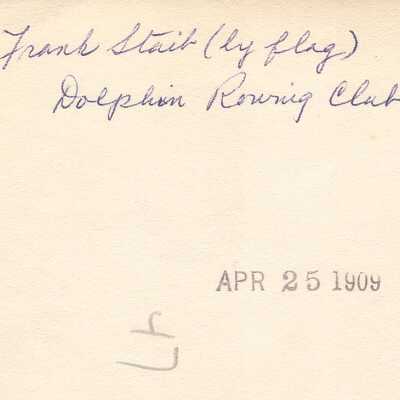 Frank Staib (by flag)
Dolphin Rowing Club
APR 25 1909